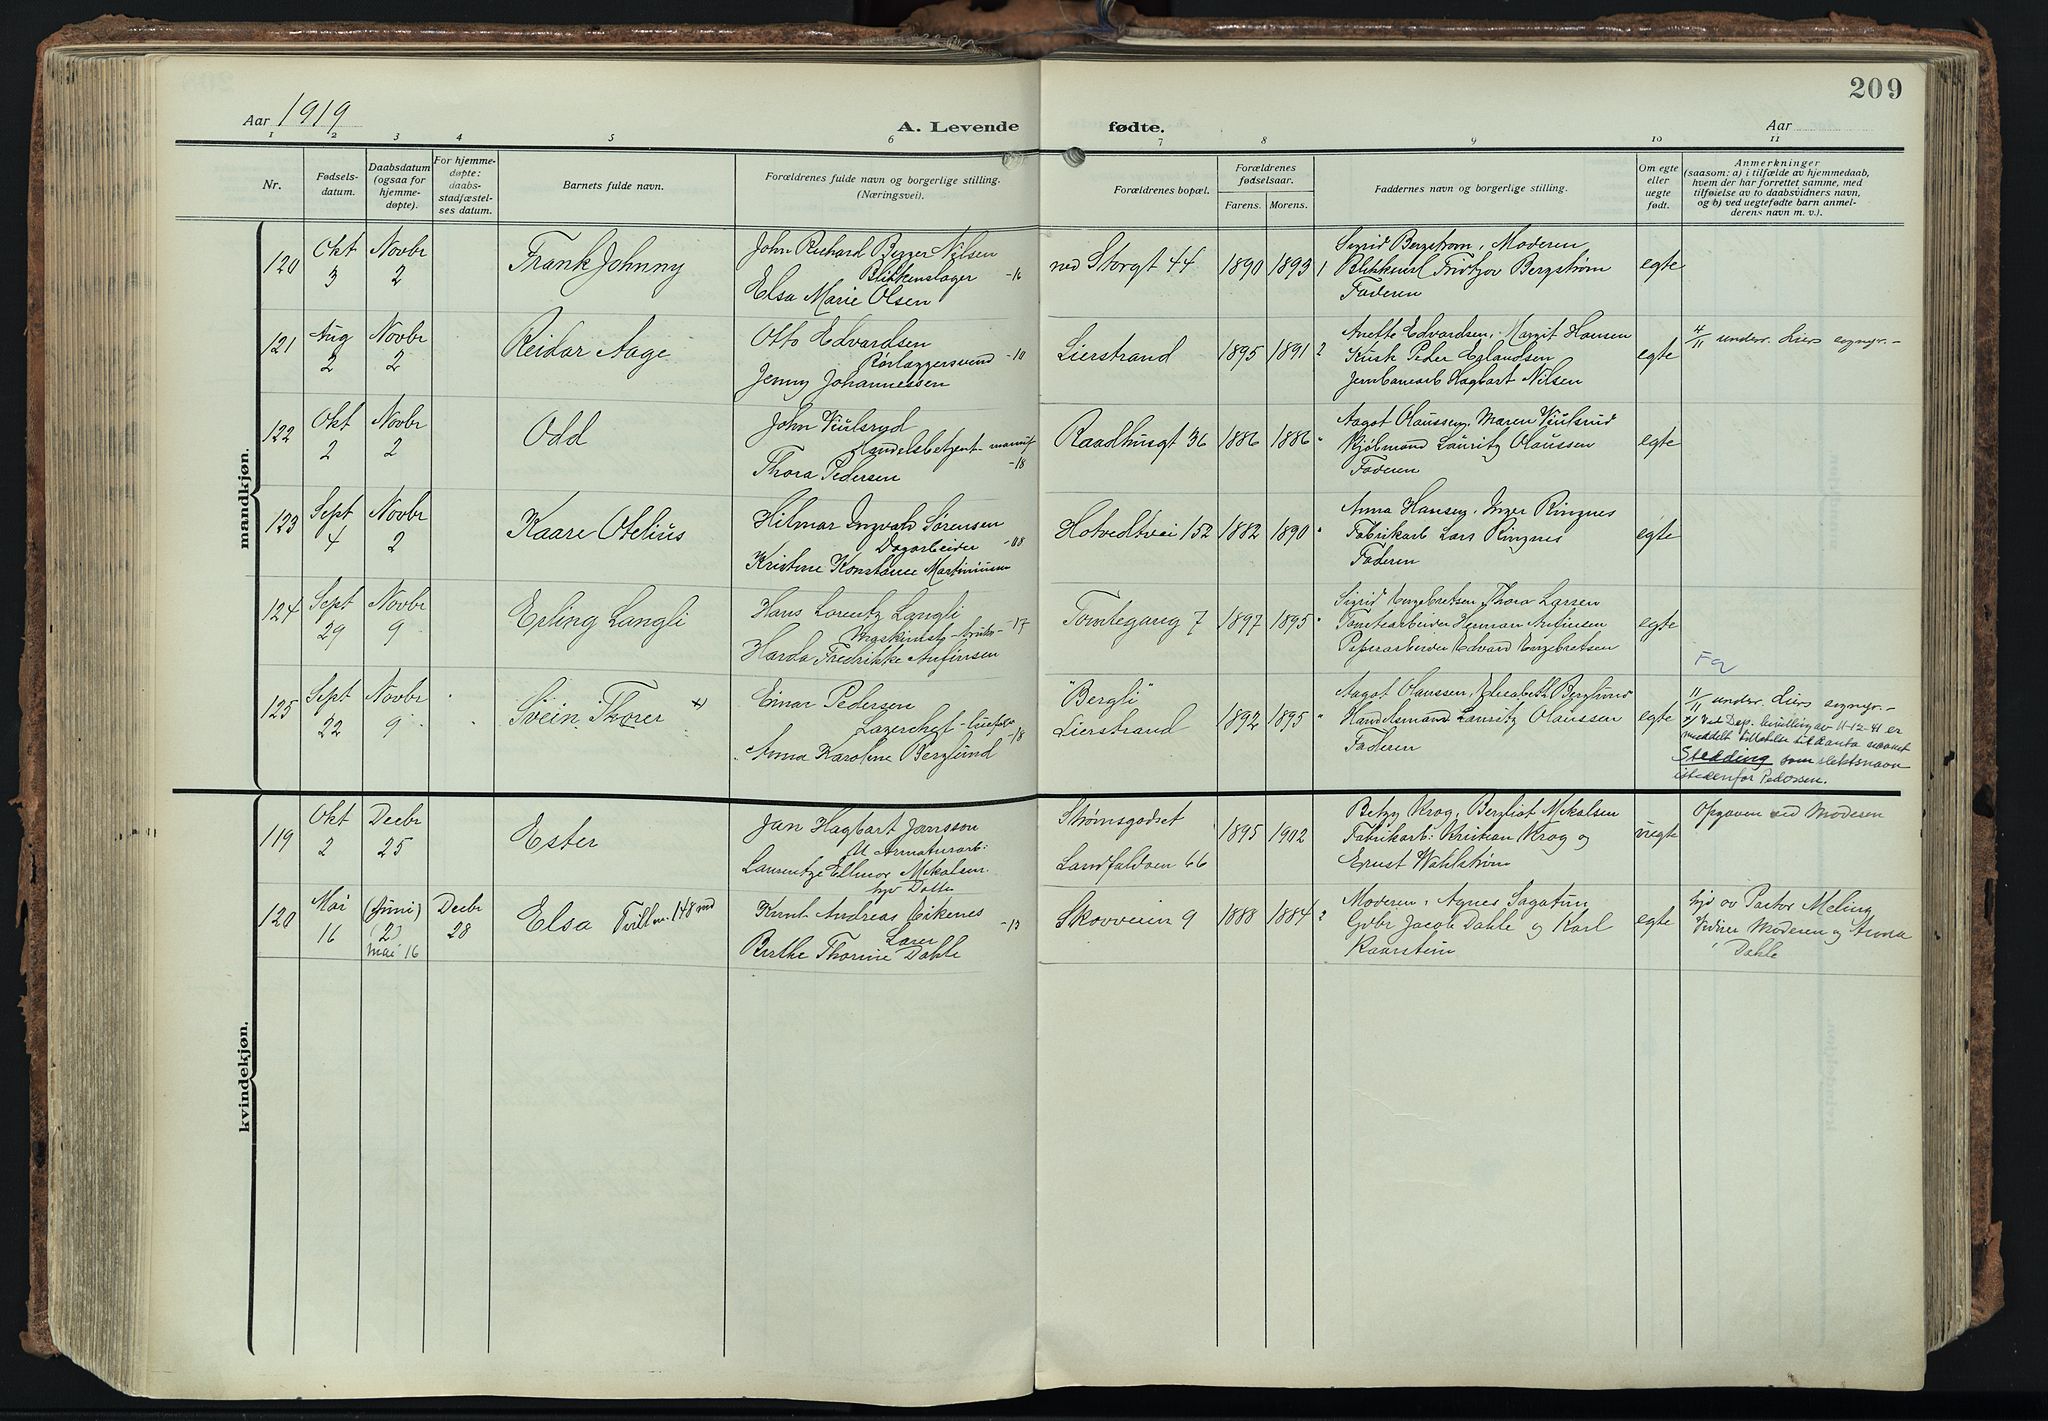 209
Aar 1919
A. Levende
fødte.
Aar
1 2 3 4 5 6 7 8 9 10 11
Nr.
Fødsels-
datum.
Daabsdatum
(ogsaa for
hjemme-
døpte).
For hjemme-
døpte:
daabs-
stadfæstel-
ses datum.
Barnets fulde navn.
Forældrenes fulde navn og borgerlige stilling.
(Næringsvei).
Forældrenes bopæl.
Forældrenes
fødselsaar.
Farens. Morens.
Faddernes navn og borgerlige stilling.
Om egte
eller
uegte
født.
Anmerkninger
(saasom: a) i tilfælde av hjemmedaab,
hvem der har forrettet samme, med
tilføielse av to daabsvidners navn,
og b) ved uegtefødte barn anmel-
derens navn m. v.).
mandkjøn.
120
Okt
3
Novbr
2
Frank Johnny
John Richard Nilsen
Blikkenslager -16
Elsa Marie Olsen
ned Storgt 44
1890 1893 1
Sigrid Bergstrøm, Moderen
Fridtjov Bergstrøm
Faderen
egte
121
Aug
2
Novbr
2
Reidar Aage
Otto Edvardsen
Rørlæggersvend -10
Jenny Johannessen
Lierstrand
1895 1891 2
Anette Edvardsen, Margit Hansen
Kusk Peder Eglandsen
Jernbanearb Hagbart Nilsen
egte
4/11 underr. Liers sognepr. -
122
Okt
2
Novbr
2
Odd
John Viulsrud
Handelsbetjent- manuf
-18
Thora Pedersen
Raadhusgt 36
1886 1886 "
Aagot Olaussen, Maren Viulsrud
Kjøbmand Lauritz Olaussen
Faderen
egte
123
Sept
4
Novbr
2
Kaare Otelius
Hilmar Ingvald Sørensen
Dagarbeider -08
Kristine Konstance Martiniusen
Hotvedtvei 152
1882 1890 "
Anna Hansen, Inger Ringnes
Fabrikarb Lars Ringnes
Faderen
egte
124
Sept
29
Novbr
9
Erling Langli
Hans Lorentz Langli
-17
Harda Fredrikke Anfinsen
Tomtegang 7
1897 1895 "
Sigrid Engebretsen, Thora Larsen
Tomtearbeider Herman Anfinsen
Papirarbeider Edvard Engebretsen
egte
125
Sept
22
Novbr
9
Svein Thorer x)
Einar Pedersen
Lagerchef
-18
Anna Karoline Berglund
"Bergli"
Lierstrand
1892 1895 "
Aagot Olaussen, Elisabeth Berglund
Handelsmand Lauritz Olaussen
Faderen
egte
Fq
11/11 underr. Liers sognepr. -
x) Ved Dep. bevilling av 11-12-41 er
meddelt tillatelse til å anta navnet
Stedding som slektsnavn
istedenfor Pedersen.
kvindekjøn.
119
Okt
2
Decbr
25
Ester
Jan Hagbart Jansson
Armaturarb:
Laurentze Ellinor Mikalsen
Strømsgodset
Landfaldøen 66
1895 1902
Betzy Krog, Bergliot Mikalsen
Fabrikarb: Kristian Krog og
Ernst Wahlstrøm
uegte
Opgaven ved Moderen
120
Mai
16
(Juni)
(2)
mai 16
Decbr
28
Elsa Tvilling 148 md
Knut Andreas Eikenes
Lærer -13
Berthe Thorine Dahle
Skovveien 9
1888 1884 2
Moderen, Agnes Sagatun
Gdbr Jacob Dahle og Karl
Kaarstein
egte
hjd av Pastor Meling
Vidner Moderen og Anna
Dahle